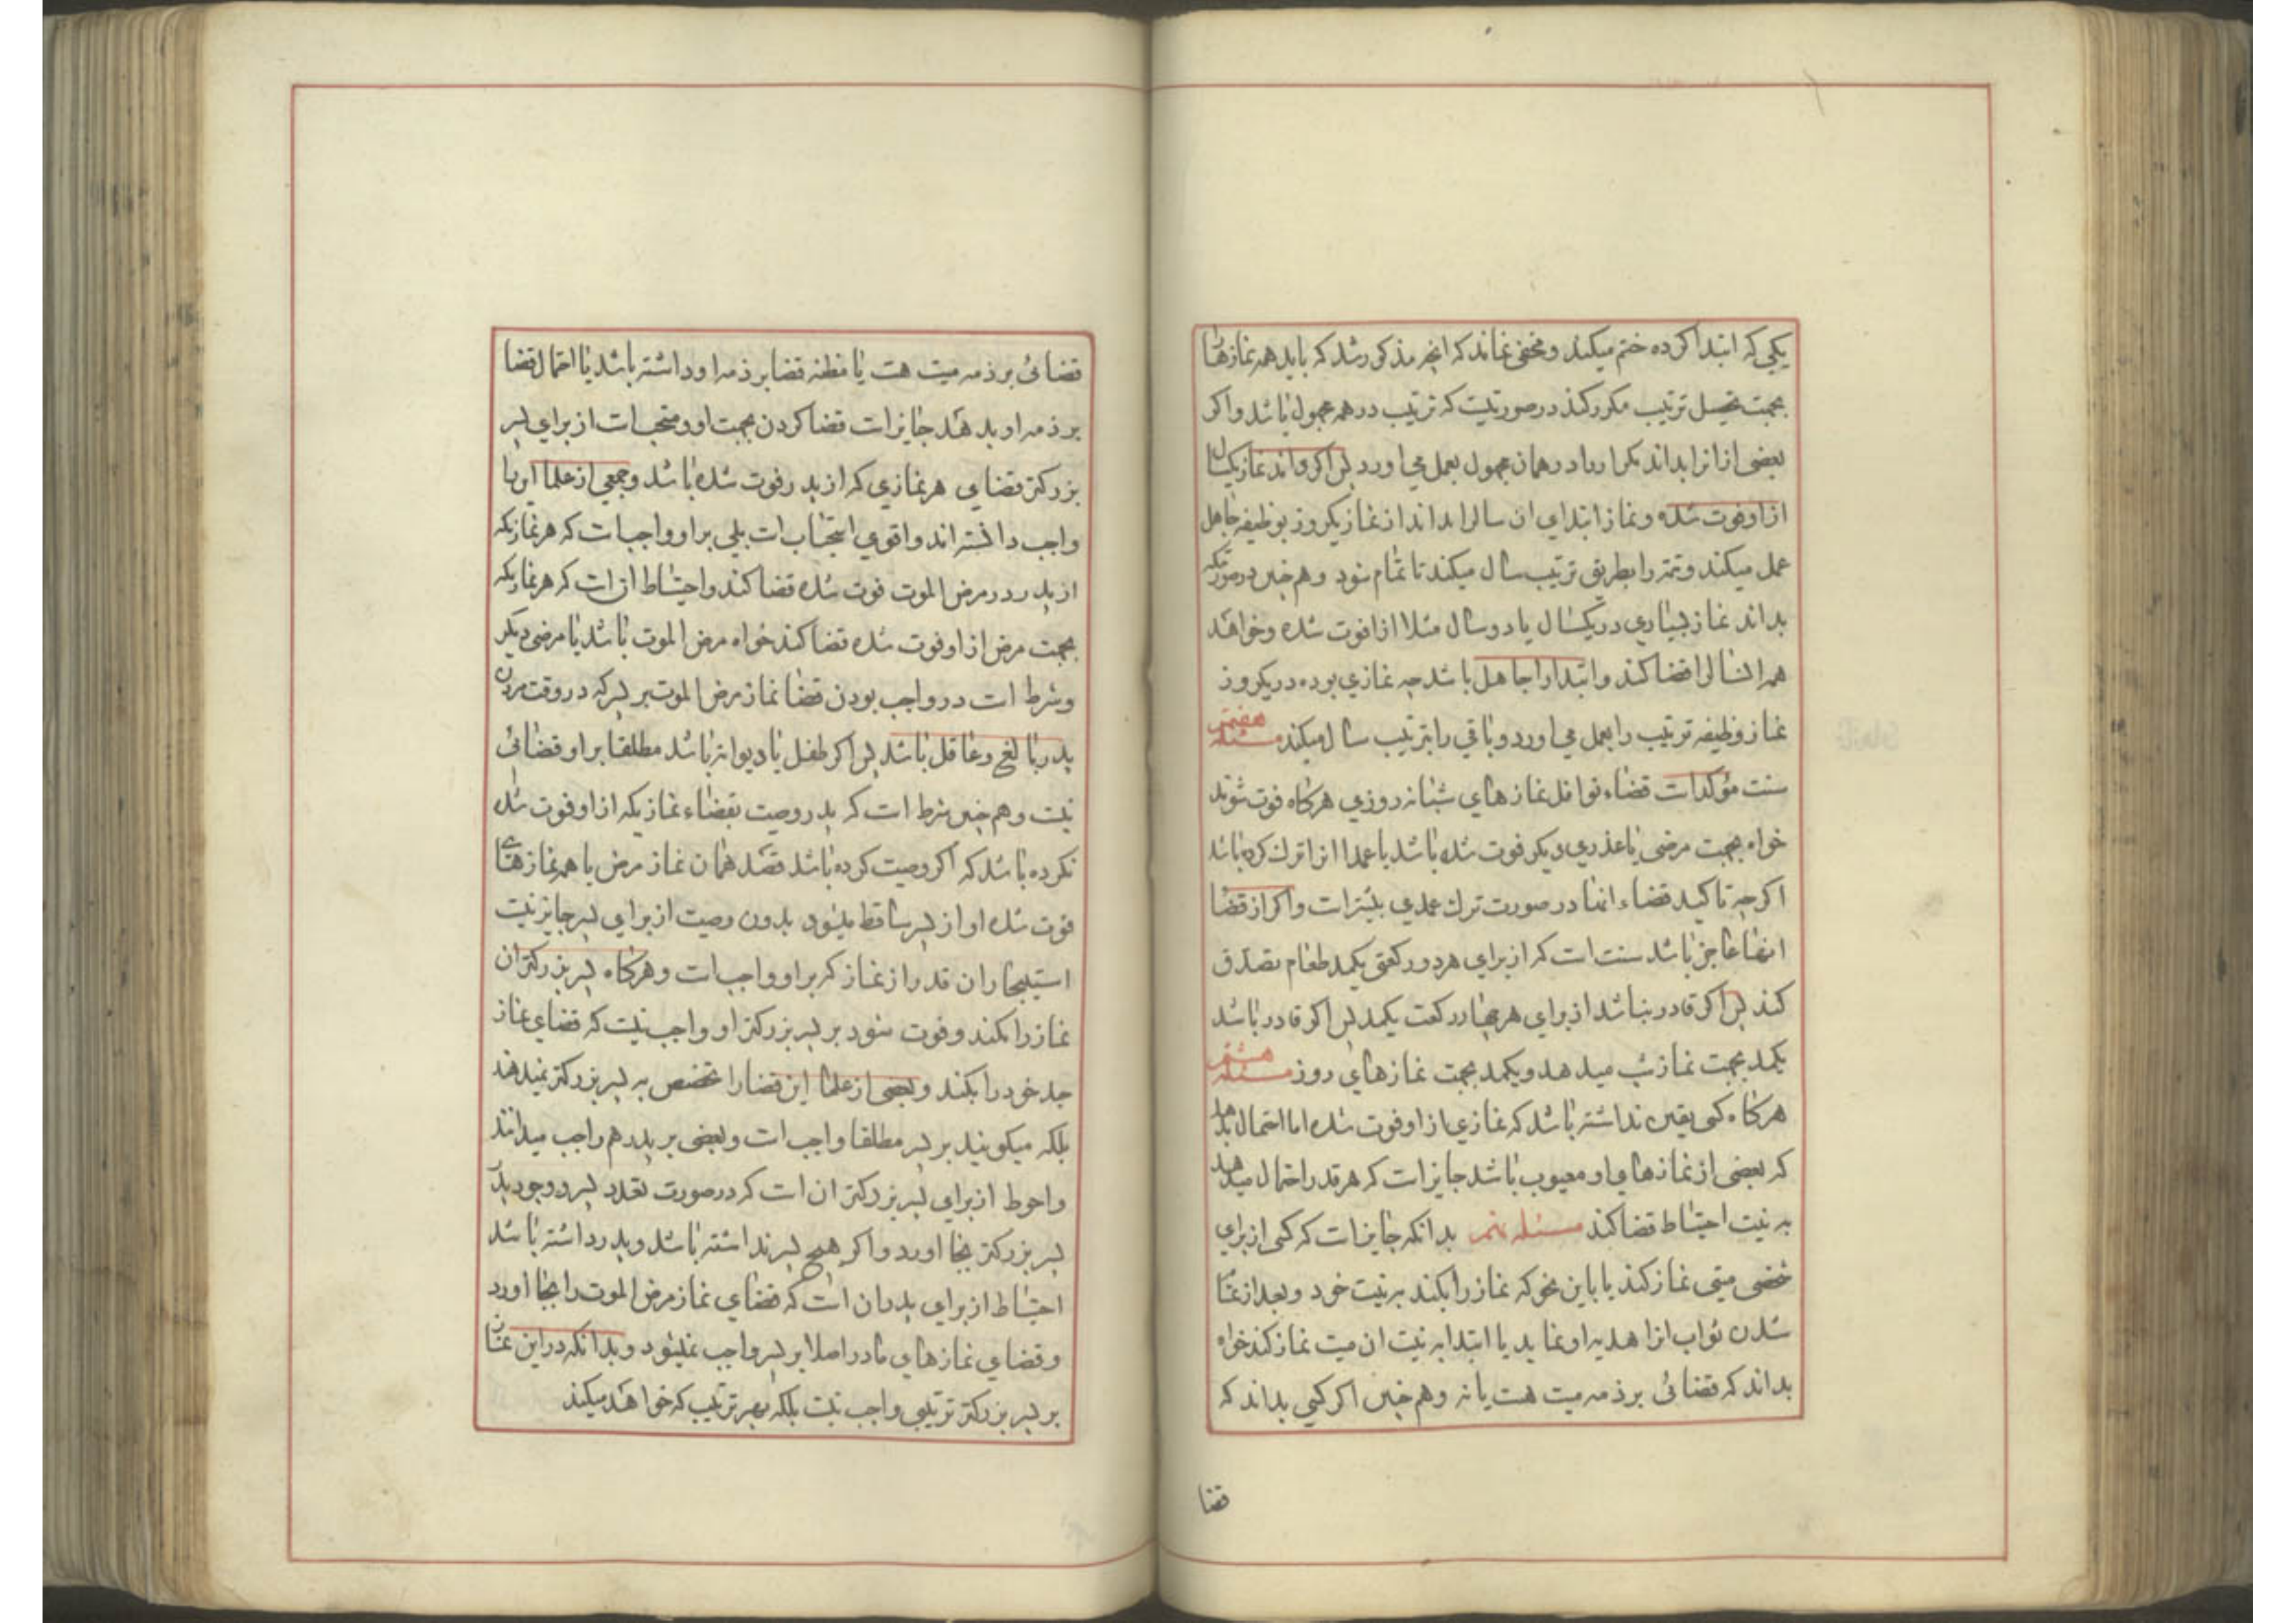 یکی که ابتدا کرده ختم میکند و مخفی نماند که انچه مذکور شد که باید همه نمازها را
بجهت تحصیل ترتیب مکرر کند در صورتیست که ترتیب در همه مجهول باشد و اکر
بعضی از انرا بداند تکرار را در همان مجهول بعمل می اورد پس اکر داند نماز یکسال
از او فوت شده و نماز ابتدای ان سال را بداند از نماز یکروز بوظیفه جاهل
عمل میکند و تتمه را بطریق ترتیب سال میکند تا تمام شود و هم چنین در صورتیکه
بداند نماز بسیاری در یکسال یا دو سال مثلا از او فوت شده و خواهد
همه انسال را قضا کند و ابتدا را جاهل باشد چه نمازی بوده در یکروز
نماز وظیفه ترتیب را بعمل می اورد و باقی را بترتیب سال میکند مسئله هفتم
سنت مؤکد است قضاء نوافل نمازهای شبانه روزی هرکاه فوت شوند
خواه بجهت مرضی یا عذری دیکر فوت شده باشد یا عمدا انرا ترک کرده باشد
اکرچه تاکید قضاء انها در صورت ترک عمدی بیشتر است و اکر از قضا
انها عاجز باشد سنت است که از برای هر دو رکعتی یکمد طعام تصدق
کند پس اکر قادر نباشد از برای هر چهار رکعت یکمد پس اکر قادر نباشد
یکمد بجهت نماز شب میدهد و یکمد بجهت نمازهای روز مسئله هشتم
هرکاه کسی یقین نداشته باشد که نمازی از او فوت شده اما احتمال بدهد
که بعضی از نمازهای او معیوب باشد جایز است که هر قدر احتمال میدهد
به نیت احتیاط قضا کند مسئله نهم بدانکه جایز است که کسی از برای
شخصی میتی نماز کند یا باین نحو که نماز را بکند به نیت خود و بعد از تمام
شدن ثواب انرا هدیه او نماید یا ابتدا به نیت ان میت نماز کند خواه
بداند که قضائی بر ذمه میت هست یا نه و هم چنین اکر کسی بداند که
قضا
قضائی بر ذمه میت هست یا مظنه قضا بر ذمه او داشته باشد یا احتمال قضا
بر ذمه او بدهد جایز است قضا کردن بجهت او و مستحب است از برای پسر
بزرکتر قضای هر نمازی که از پدر فوت شده باشد و جمعی از علما این را
واجب دانسته اند و اقوی استحباب است بلی بر او واجب است که هر نمازیکه
از پدر در مرض الموت فوت شده قضا کند و احتیاط ان است که هر نمازیکه
بجهت مرض از او فوت شده قضا کند خواه مرض الموت باشد یا مرضی دیکر
و شرط است در واجب بودن قضا نماز مرض الموت بر پسر که در وقت مردن
پدر بالغ و عاقل باشد پس اکر طفل یا دیوانه باشد مطلقا بر او قضائی
نیست و هم چنین شرط است که پدر وصیت بقضاء نمازیکه از او فوت شده
نکرده باشد که اکر وصیت کرده باشد قصد همان نماز مرض یا همه نمازهای
فوت شده او از پسر ساقط میشود بدون وصیت از برای پسر جایز نیست
استیجار ان قدر از نماز که بر او واجب است و هرکاه پسر بزرکتر ان
نماز را نکند و فوت شود بر پسر بزرکتر او واجب نیست که قضای نماز
جد خود را بکند و بعضی از علما این قضا را تخصیص به پسر بزرکتر نمیدهند
بلکه میکویند بر پسر مطلقا واجب است و بعضی بر پدر هم واجب میدانند
و احوط از برای پسر بزرکتر ان است که در صورت تعدد پسر و وجود پدر
پسر بزرکتر بجا اورد و اکر هیچ پسر نداشته باشد و پدر داشته باشد
احتیاط از برای پدر ان است که قضای نماز مرض الموت را بجا اورد
و قضای نمازهای مادر اصلا بر پسر واجب نمیشود و بدانکه در این نماز
بر پسر بزرکتر ترتیبی واجب نیست بلکه بهر ترتیب که خواهد میکند